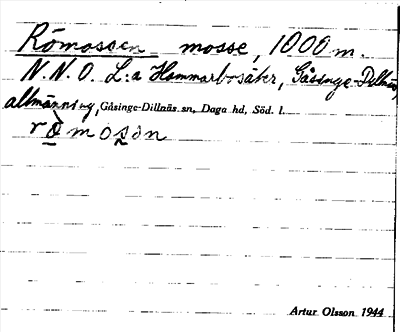 Römossen mosse, 1000 m.
N.N.O. L:a Hammarbosäter, Gåsinge-Dillnäs,
allmänning, Gåsinge-Dillnäs sn, Daga hd, Söd. l.
Artur Olsson 1944